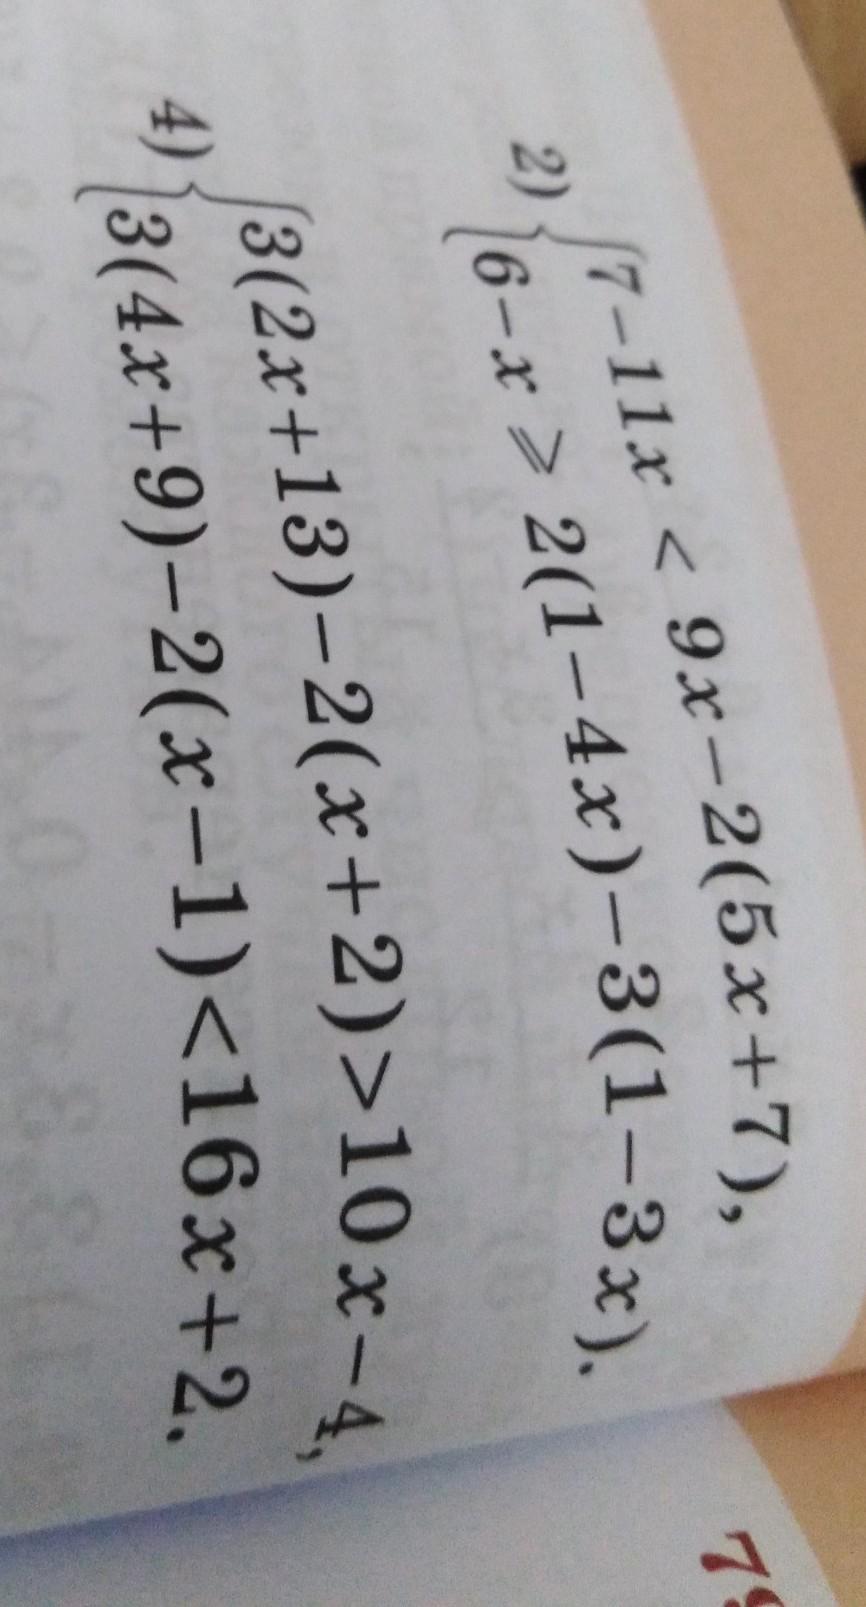 2) { 7-11x < 9x-2(5x+7),
6-x ⩾ 2(1-4x)-3(1-3x).
4) { 3(2x+13)-2(x+2)>10x-4,
3(4x+9)-2(x-1)<16x+2.